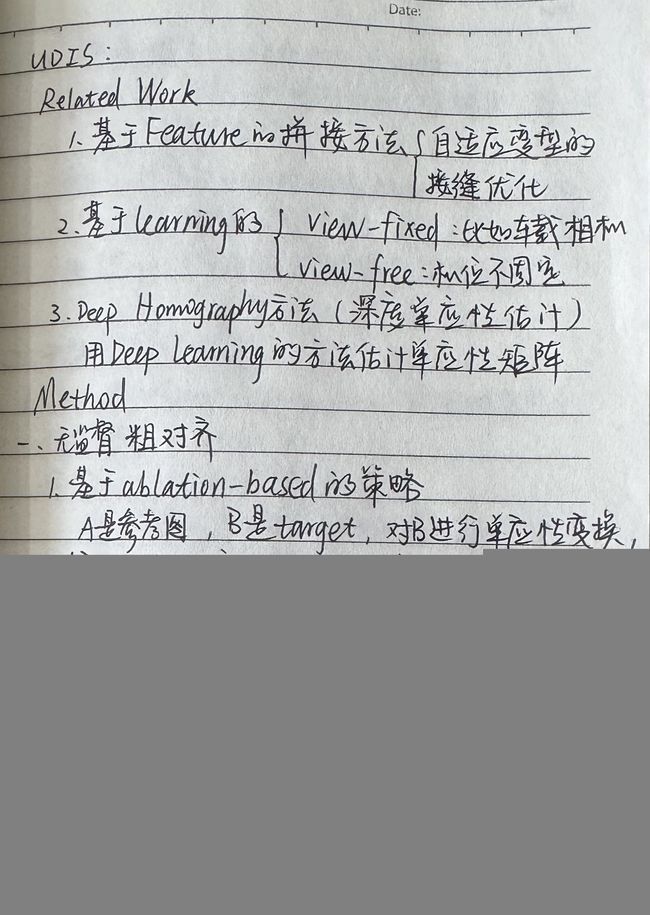 Date:
UDIS:
Related Work
1. 基于Feature的拼接方法{自适应变型的
接缝优化
2. 基于learning的{view-fixed:比如车载相机
view-free:机位不固定
3. Deep Homography方法(深度单应性估计)
用Deep Learning的方法估计单应性矩阵
Method
一、无监督粗对齐
1. 基于ablation-based的策略
A是参考图,B是target,对B进行单应性变换,